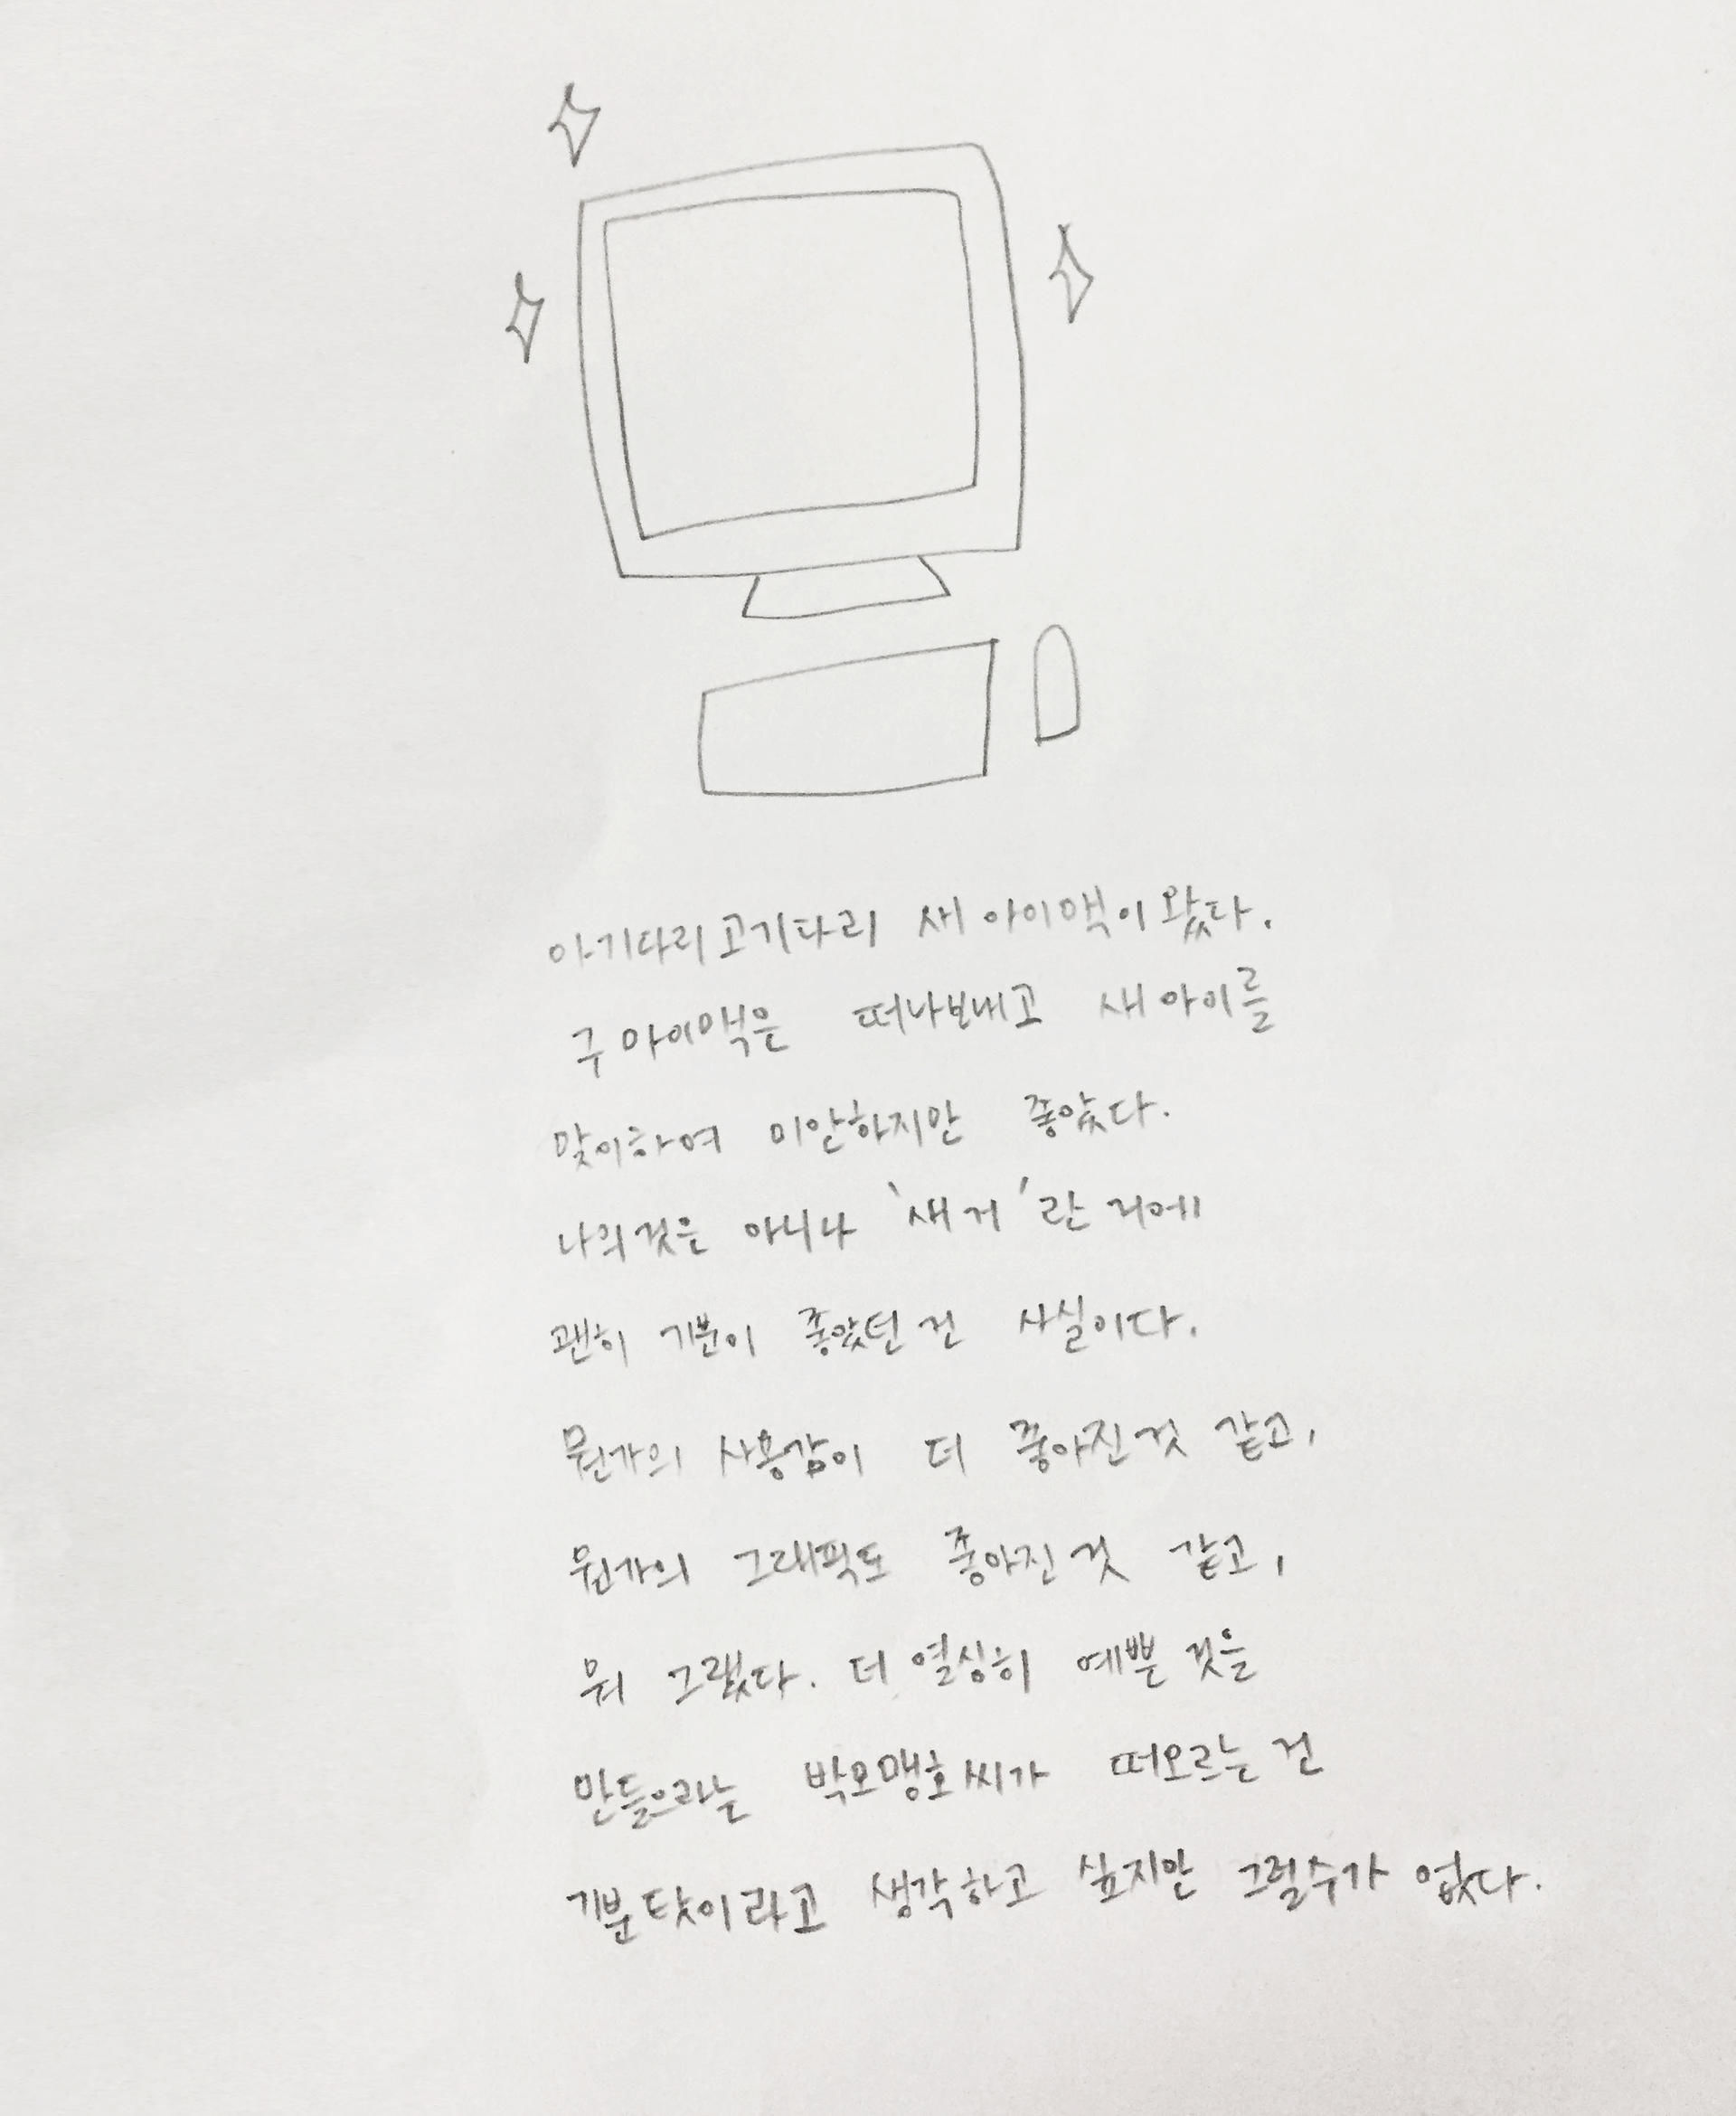 아기다리고기다리 새 아이맥이 왔다.
구 아이맥은 떠나보내고 새 아이를
맞이하여 미안하지만 좋았다.
나의 것은 아니나 '새 거'란 거에
괜히 기분이 좋았던 건 사실이다.
뭔가의 사용감이 더 좋아진 것 같고,
뭔가의 그래픽도 좋아진 것 같고,
뭐 그랬다. 더 열심히 예쁜 것을
만들으라는 박오맹호씨가 떠오르는 건
기분 탓이라고 생각하고 싶지만 그럴수가 없다.